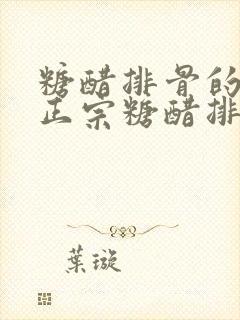 糖醋排骨的
正宗糖醋排
葉璇